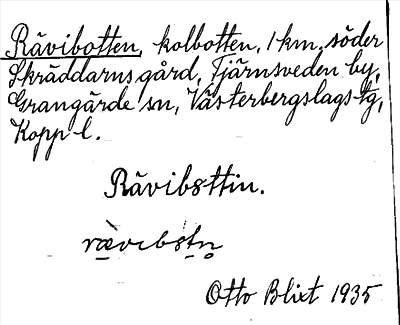 Rävibotten, kolbotten, 1 km. söder
Skräddarns gård, Tjärnsveden by,
Grangärde sn, Västerbergslags tg,
Kopp l.
Rävibsttin.
rævibstn̥
Otto Blixt 1935